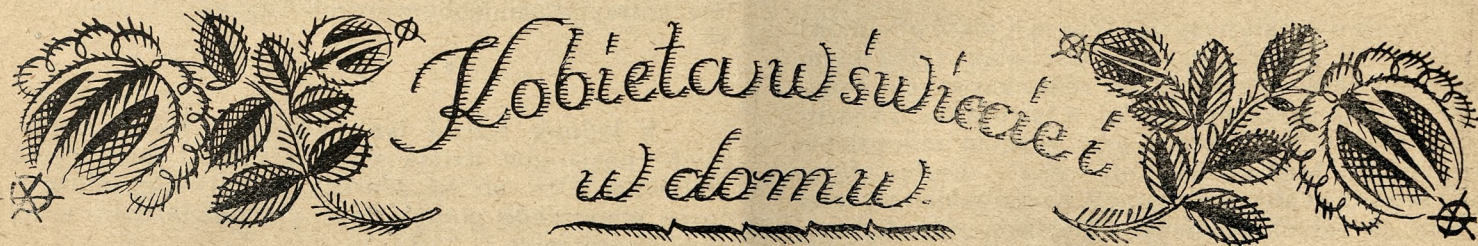 Kobieta w świecie i
w domu